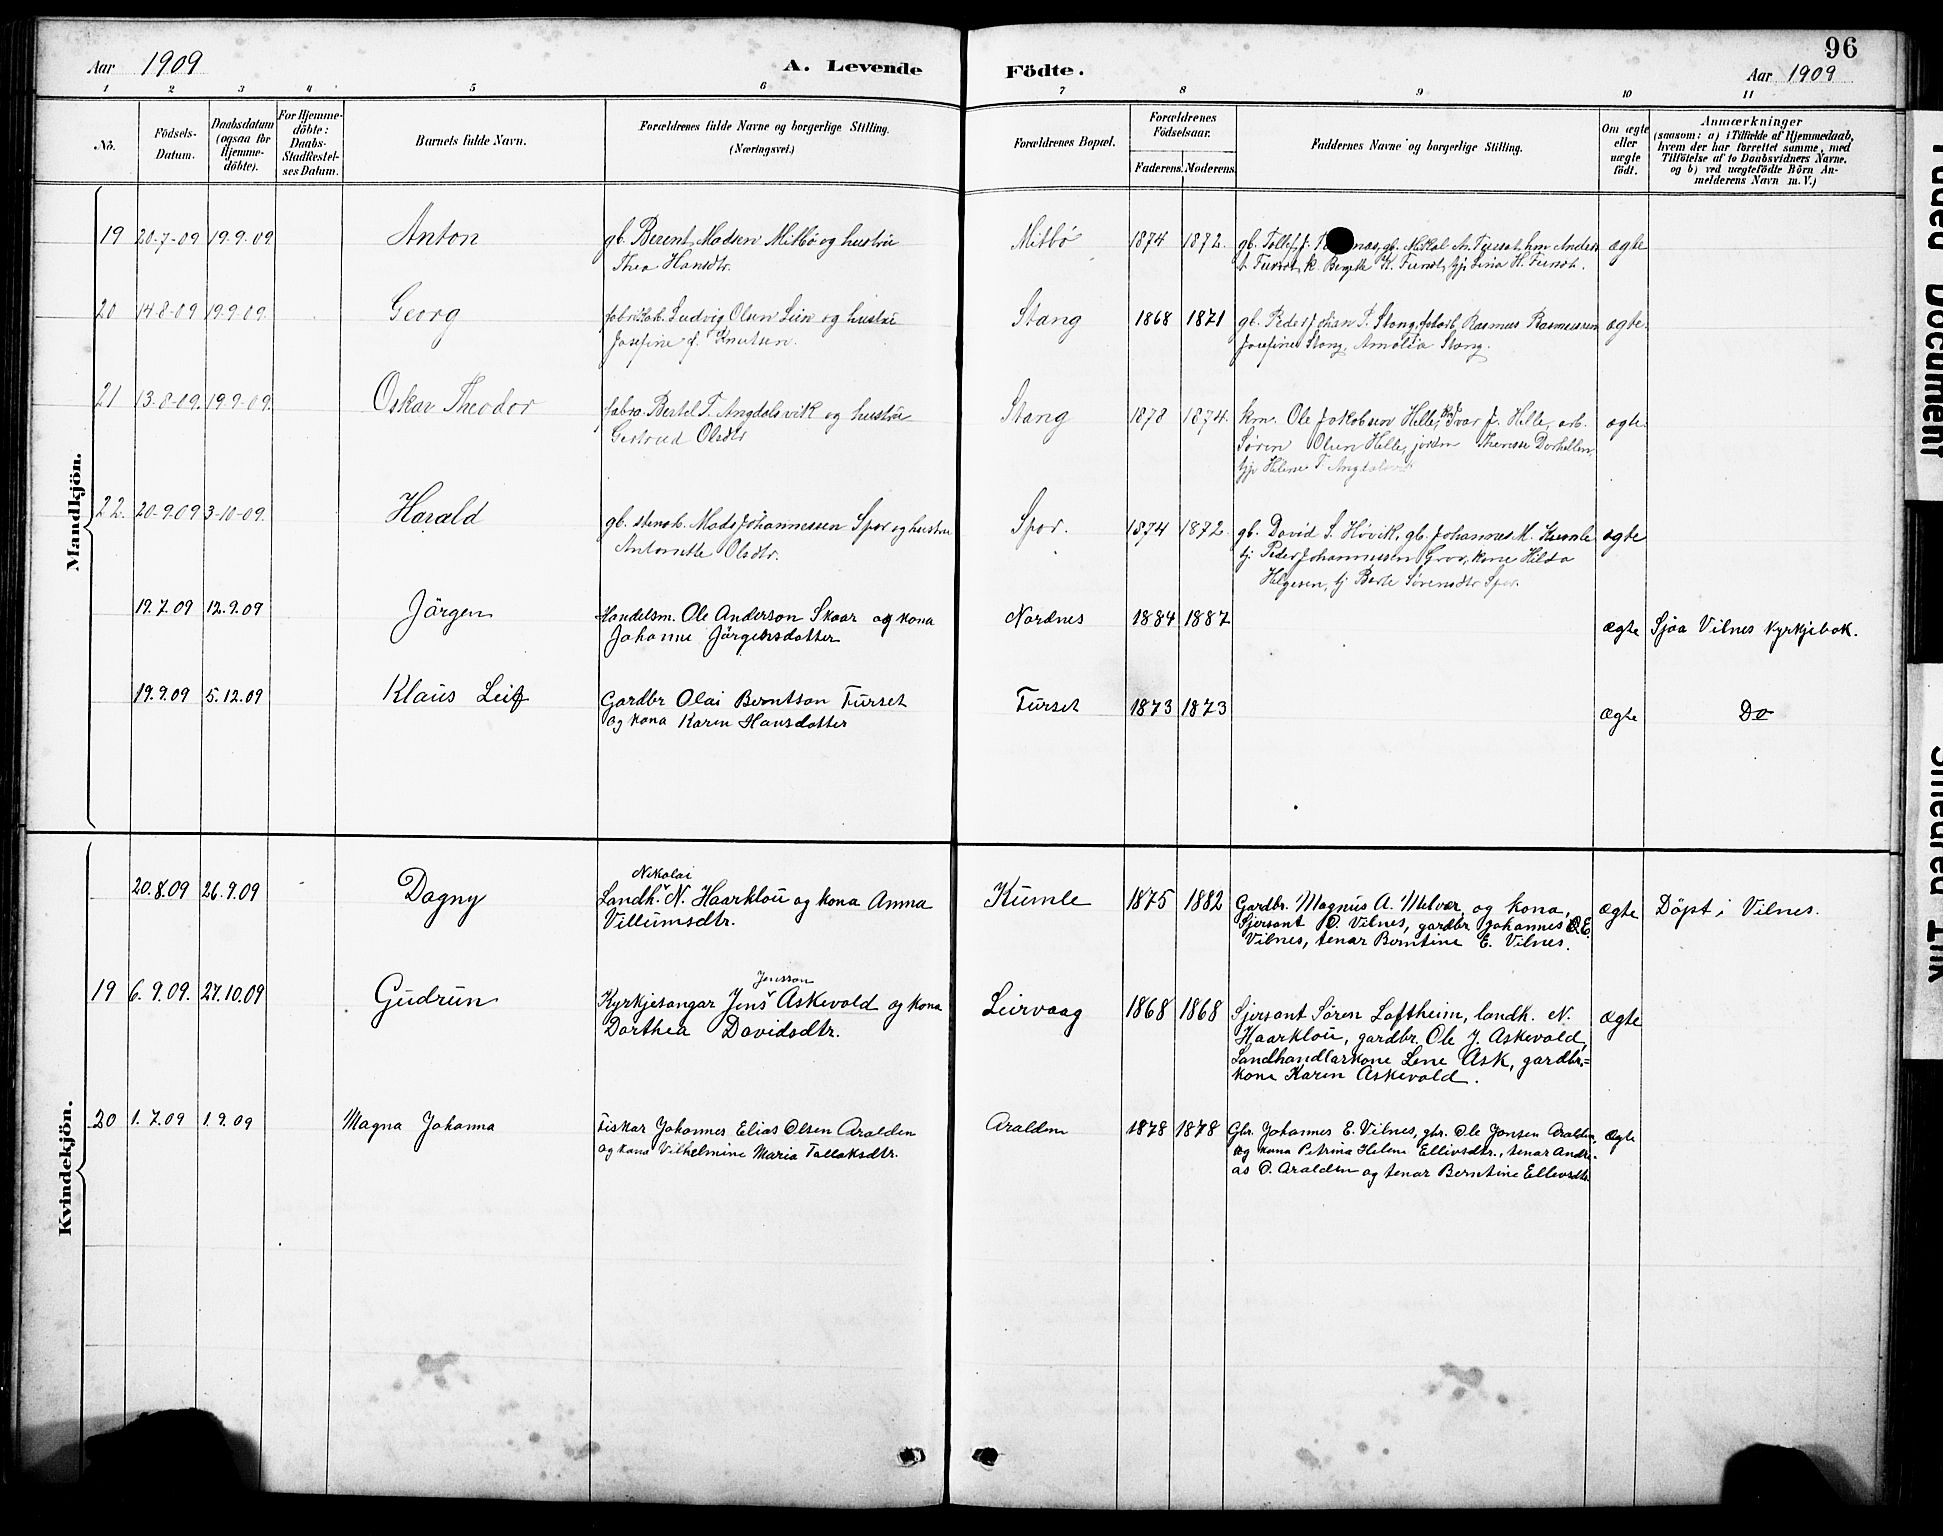 96
Aar 1909 A. Levende Födte. Aar 1909
1 2 3 4 5 6 7 8 9 10 11
No. Födsels-Datum. Daabsdatum (ogsaa for Hjemmedöbte). For Hjemmedöbte: Daabs-Stadfæstelses Datum. Barnets fulde Navn. Forældrenes fulde Navne og borgerlige Stilling. (Næringsvei.) Forældrenes Bopæl. Forældrenes Födselsaar. Faderens. Moderens. Faddernes Navne og borgerlige Stilling. Om ægte eller uægte födt. Anmærkninger (saasom: a) i Tilfælde af Hjemmedaab, hvem der har forrettet samme, med Tilföielse af to Daabsvidners Navne. og b) ved uægtefödte Börn Anmelderens Navn m. V.)
Mandkjön.
19 20-7-09 19.9.09 Anton gb. Berent Madsen Mitbö og hustru Mitbö 1874 1872. gb. Nikol ægte
Thea Hansdtr.
20 14-8-09 19.9.09. Georg Ludvig Olsen og hustru Stang 1868 1871 gb. Peder Johan T. Stang, Rasmus Rasmussen ægte.
Josefine f. Knutsen. Josefine Stang, Amalia Stang.
21 13-8-09. 19.9-09. Oskar Theodor Bertel T. Angdalsvik og hustru Stang 1878 1874. Ole Jakobsen Helle, Ivar J. Helle, arb. ægte.
Gertrud Olsdtr Sören Olsen Helle,
Helene T. Angdalsvik
22. 20-9-09 3-10-09. Harald gb. Mads Johannessen Spor og hustru Spor. 1874 1872. gb. David S. Hövik, gb. Johannes M. Kumle ægte
Antonette Olsdtr. tj. Peder Johannessen Grov, kone Hilda
Helgesen, tj Berte Sörensdtr Spor.
19.7.09 12.9.09 Jörgen Handelsm. Ole Anderson Skaar og kona Nordnes 1884 1887 ægte Sjaa Vilnes kyrkjebok.
Johanne Jörgensdotter
19.9.09 5.12.09 Klaus Leif Gardbr Olai Berntson Furset Furset 1873 1873 ægte Do
og kona Karen Hansdotter
Kvindekjön.
Nikolai
20.8.09 26.9.09 Dagny Landh. N. Haarklou og kona Anna Kumle 1875 1882 Gardbr. Magnus A. Melvær og kona, ægte Döpt i Vilnes.
Villumsdtr. Sjersant O. Vilnes, gardbr Johannes E.
Vilnes, tenar Berntine E. Vilnes.
Jensson
19 6.9.09. 27.10.09 Gudrun Kyrkjesangar Jens Askevold og kona Leirvaag 1868 1868 Sjersant Sören Loftheim, landh. N. ægte
Dorthea Davidsdtr. Haarklou, gardbr. Ole J. Askevold,
Landhandlarkone Lene Ask, gardbr.=
kone Karen Askevold.
20 1.7.09 1.9.09 Magna Johanna Fiskar Johannes Elias Olsen Aralden Aralden 1878 1878 Gbr. Johannes E. Vilnes, gbr. Ole Jonsen Aralden, ægte
og kona Vilhelmine Maria Tollaksdtr. og kona Petrina Helene Ellivsdtr., tenar Andre-
as O. Aralden og tenar Berntine Ellevsdtr.
Faded Document
Smeared Ink